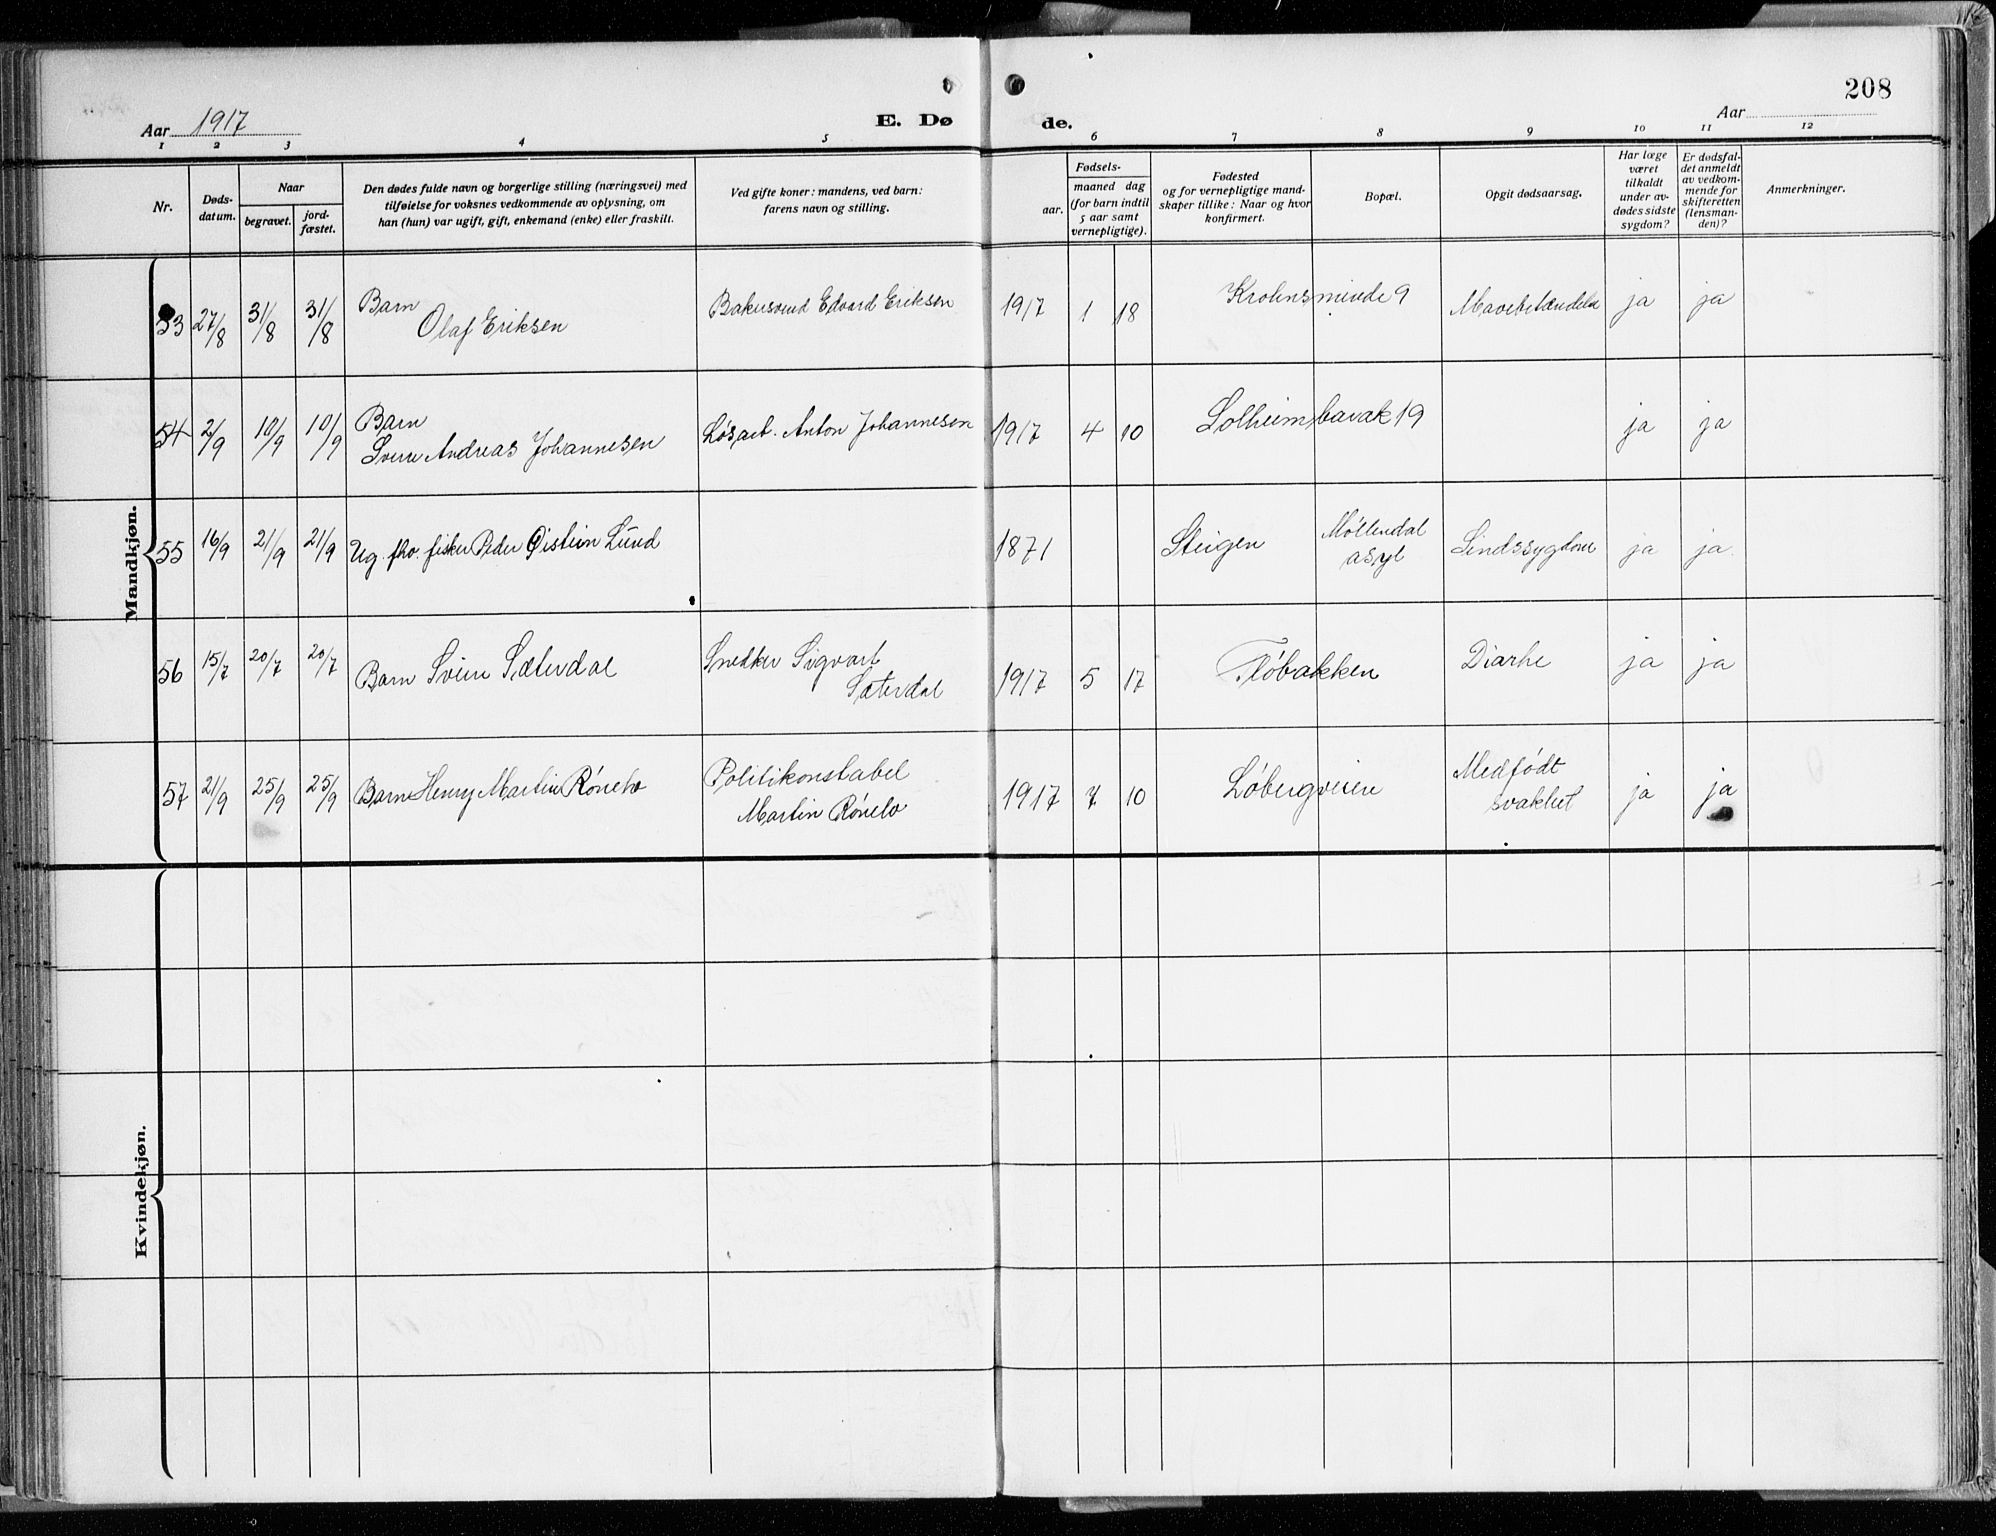 208
Aar 1917
E. Dø
de.
Aar
1 2 3 4 5 6 7 8 9 10 11 12
Nr.
Døds-
datum.
Naar
begravet.
jord-
fæstet.
Den dødes fulde navn og borgerlige stilling (næringsvei) med
tilføielse for voksnes vedkommende av oplysning, om
han (hun) var ugift, gift, enkemand (enke) eller fraskilt.
Ved gifte koner: mandens, ved barn:
farens navn og stilling.
Fødsels-
aar.
maaned dag
(for barn indtil
5 aar samt
vernepligtige).
Fødested
og for vernepligtige mand-
skaper tillike: Naar og hvor
konfirmert.
Bopæl.
Opgit dødsaarsag.
Har læge
været
tilkaldt
under av-
dødes sidste
sygdom?
Er dødsfal-
det anmeldt
av vedkom-
mende for
skifteretten
(lensman-
den)?
Anmerkninger.
Mandkjøn.
53 27/8 31/8 31/8 Barn
Olaf Eriksen
Bakersvend Edvard Eriksen 1917 1 18 Krohnsminde 9 Mavebetændelse ja ja
54 2/9 10/9 10/9 Barn
Sverre Andreas Johannesen
Løsarb. Anton Johannesen 1917 4 10 Solheimsbarak 19 ja ja
55 16/9 21/9 21/9 Ug. fhv. fisker Peder Øistein Lund 1871 Steigen Møllendal
asyl
Sindssygdom ja ja.
56 15/7 20/7 20/7 Barn Sverre Sæterdal Snedker Sigvart
Sæterdal
1917 5 17 Fløbakken Diarhe ja ja
57 21/9 25/9 25/9 Barn Henry Martin Rónelv Politikonstabel
Martin Rónelv
1917 7 10 Løbergveien Medfødt
svakhet
ja ja
Kvindekjøn.